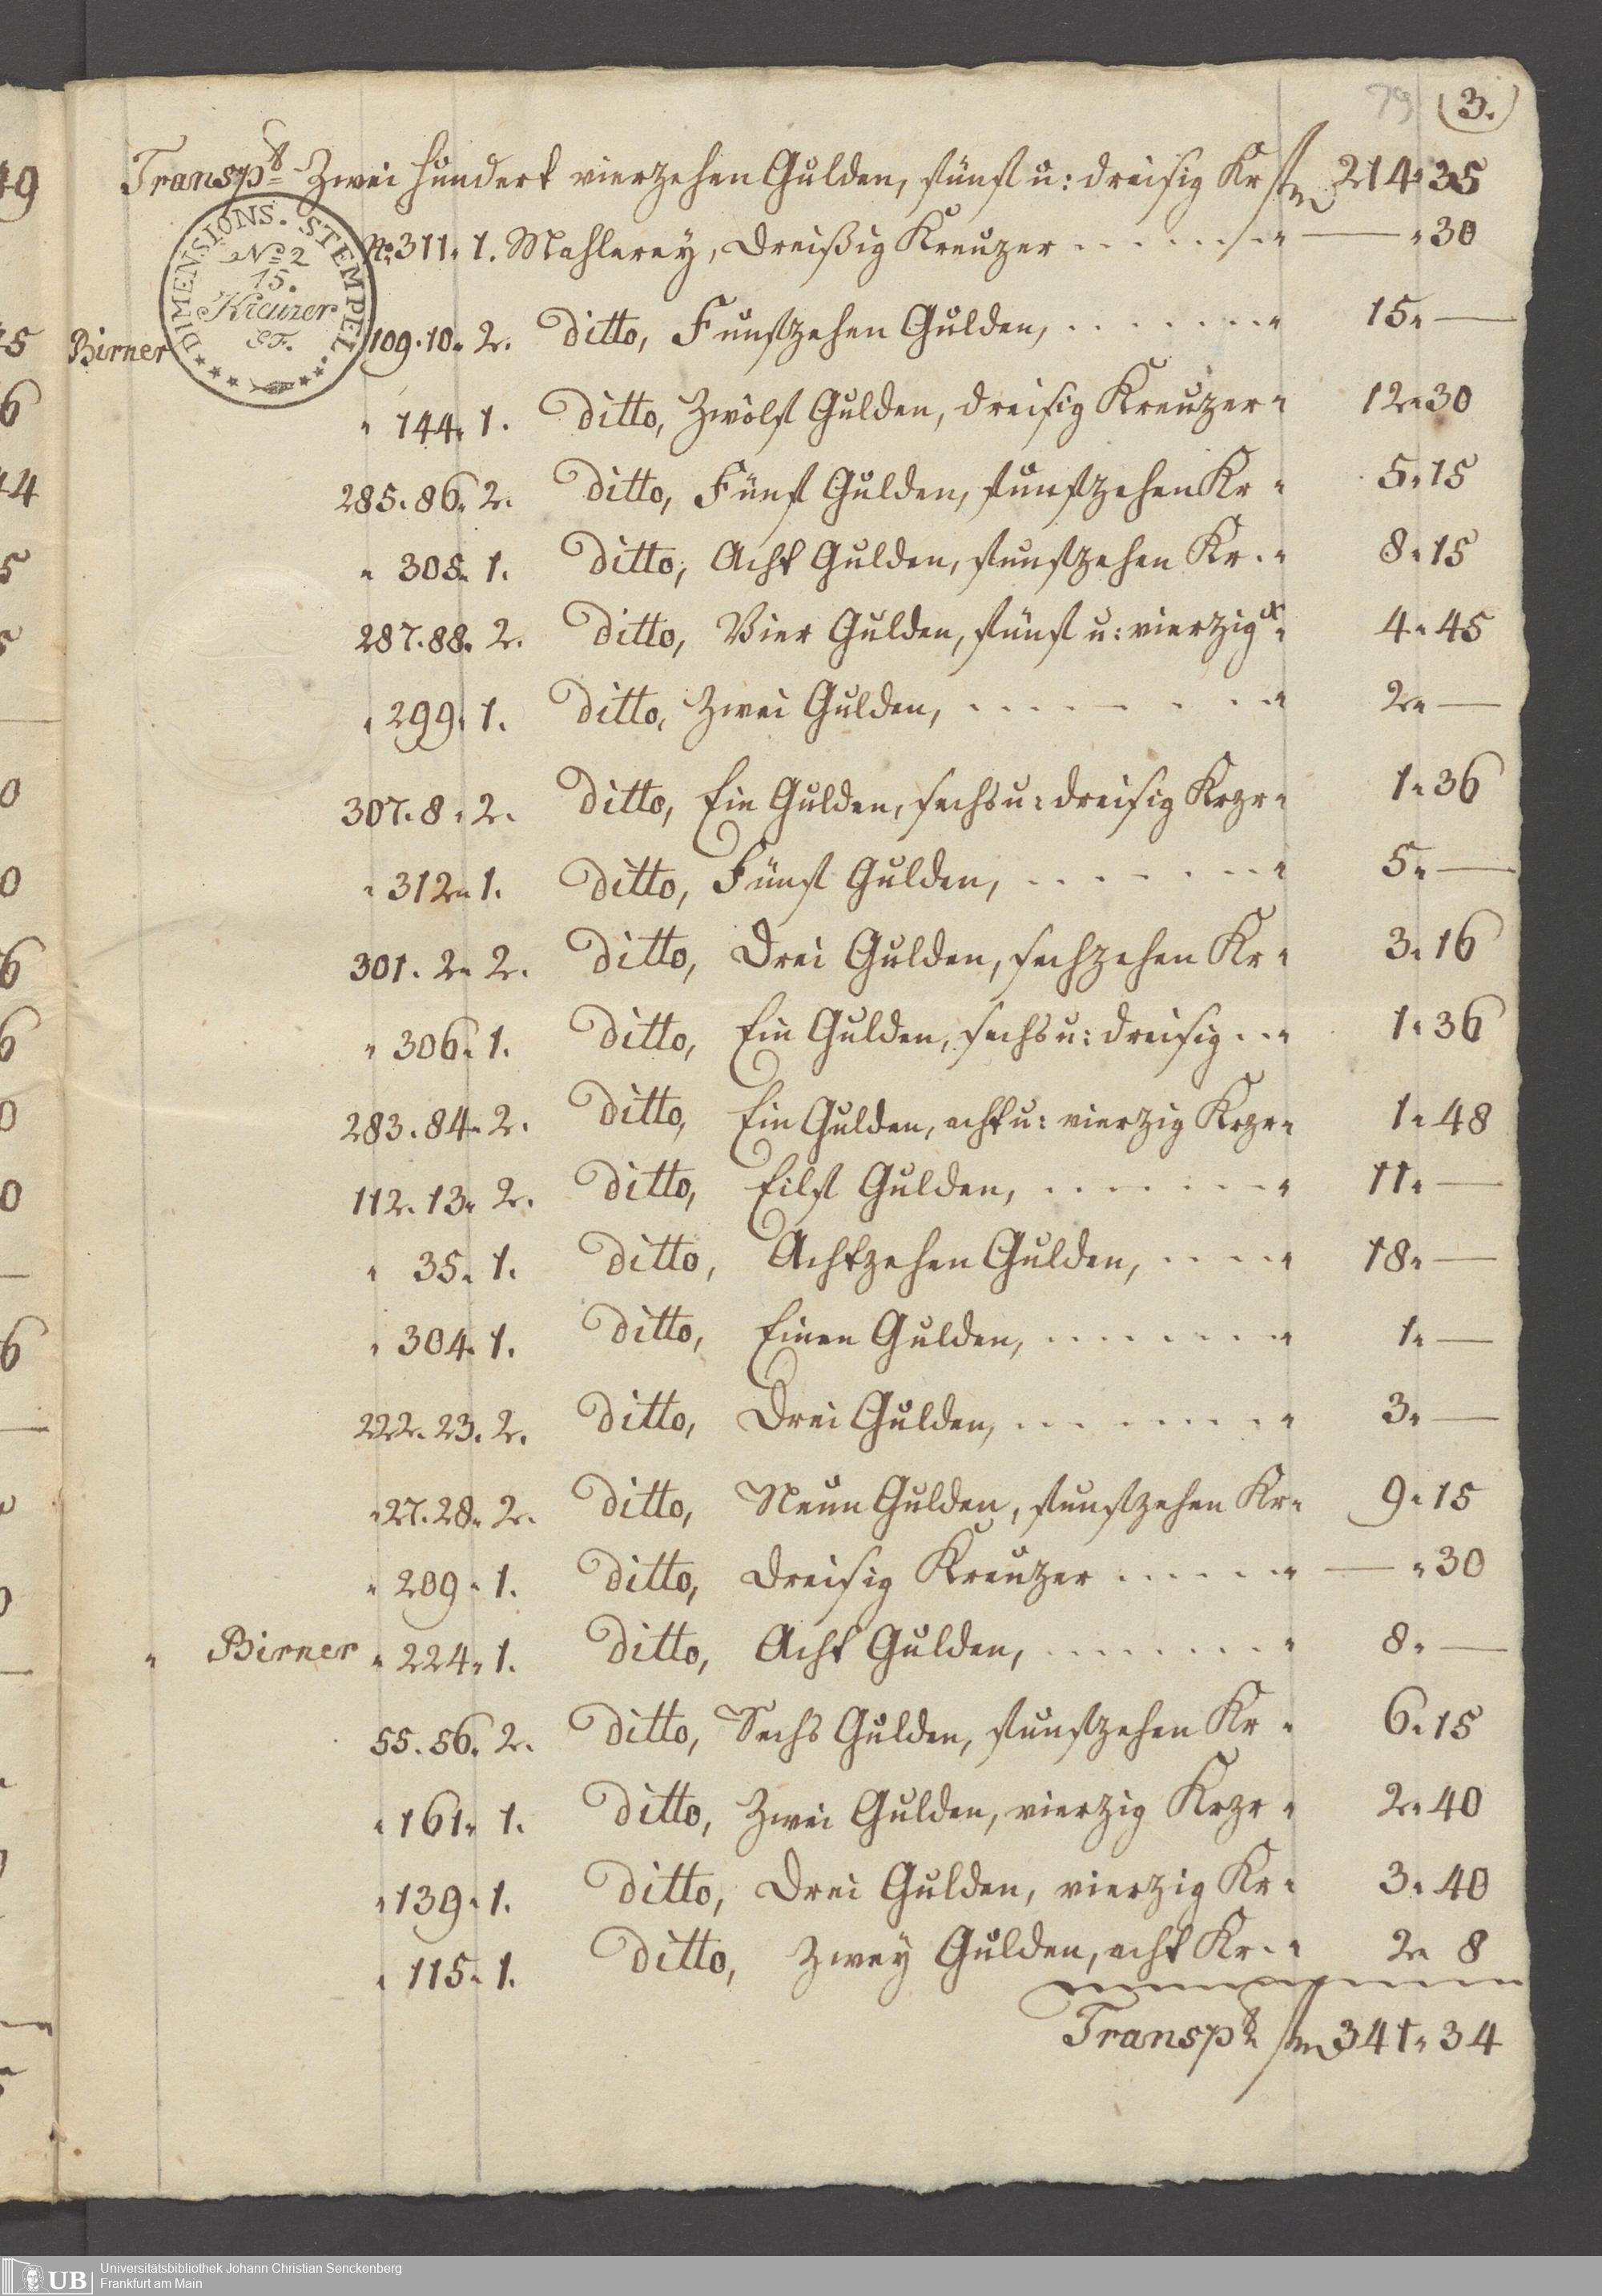 79 (3.)
Transp.t Zwei hundert vierzehen Gulden, fünf u: dreisig Kr f 214. 35
DIMENSIONS. STEMPEL
No 2
15.
Kreuzer
No. 311. 1. Mahlerey, dreißig Kreuzer — 30
Birner 109. 10. 2. ditto, Funfzehen Gulden, 15. —
" 144. 1. ditto, Zwölf Gulden, dreisig Kreuzer 12. 30
285. 86. 2. ditto, Fünf Gulden, funfzehen Kr 5. 15
" 305. 1. ditto, Acht Gulden, funfzehen Kr. 8. 15
287. 88. 2. ditto, Vier Gulden, fünf u: vierzig x 4. 45
" 299. 1. ditto, Zwei Gulden, 2. —
307. 8. 2. ditto, Ein Gulden, sechs u: dreisig Krzr 1. 36
" 312. 1. ditto, Fünf Gulden, 5. —
301. 2. 2. ditto, Drei Gulden, sechzehen Kr 3. 16
" 306. 1. ditto, Ein Gulden, sechs u: dreisig 1. 36
283. 84. 2. ditto, Ein Gulden, acht u: vierzig Krzr 1. 48
112. 13. 2. ditto, Eilf Gulden, 11. —
" 35. 1. ditto, Achtzehen Gulden, 18. —
" 304. 1. ditto, Einen Gulden, 1. —
222. 23. 2. ditto, Drei Gulden, 3. —
" 27. 28. 2. ditto, Neun Gulden, funfzehen Kr 9. 15
" 209. 1. ditto, dreisig Kreuzer — 30
" Birner " 224. 1. ditto, Acht Gulden, 8. —
55. 56. 2. ditto, Sechs Gulden, funfzehen Kr 6. 15
" 161. 1. ditto, Zwei Gulden, vierzig Krzr 2. 40
" 139. 1. ditto, Drei Gulden, vierzig Kr 3. 40
" 115. 1. ditto, Zwey Gulden, acht Kr. 2. 8
Transp.t f 341. 34
UB Universitätsbibliothek Johann Christian Senckenberg
Frankfurt am Main